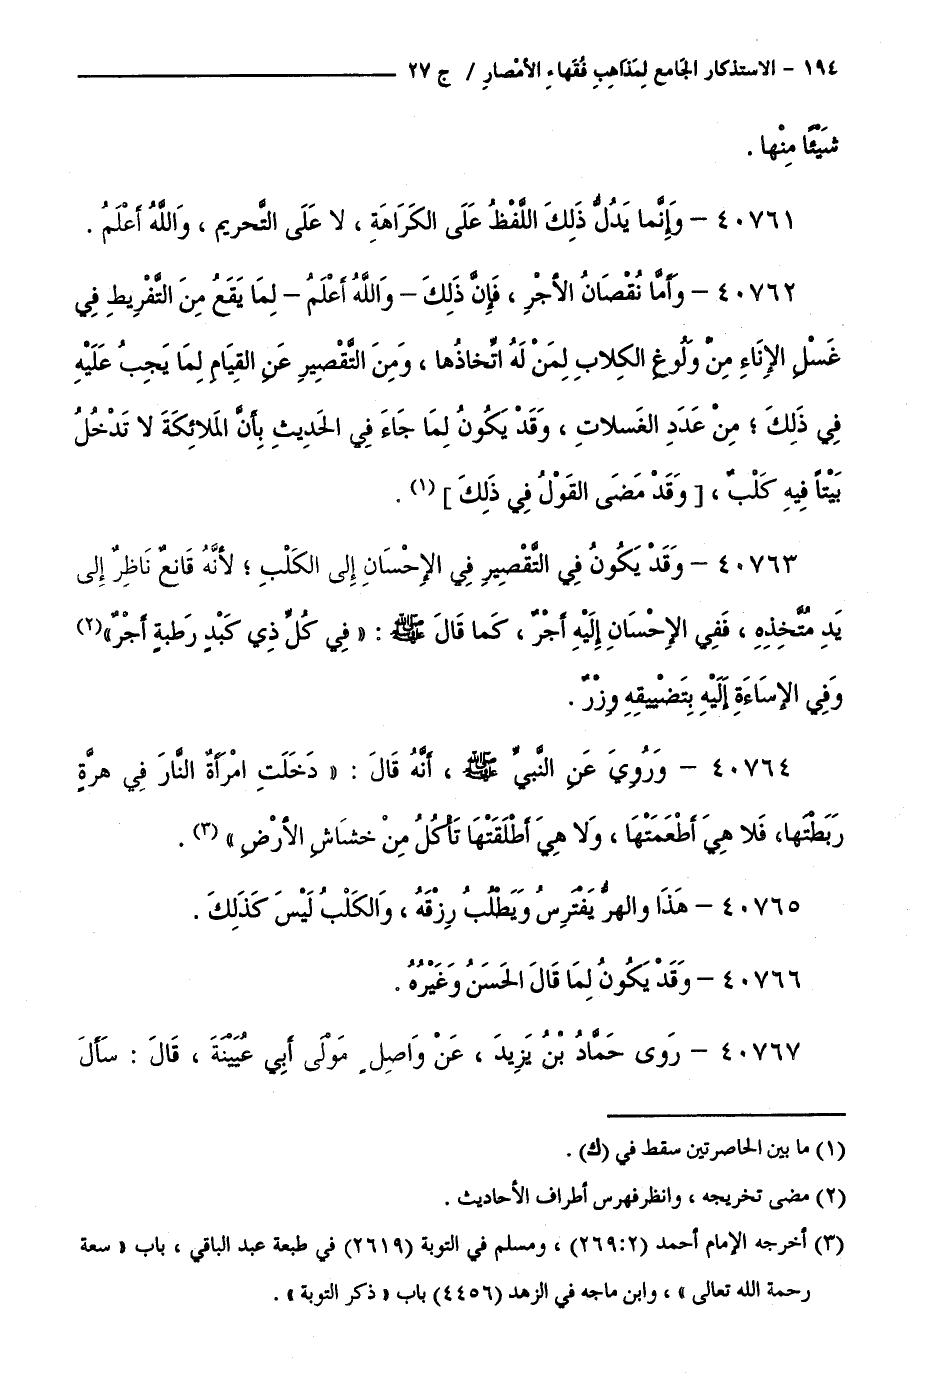 ١٩٤ - الاستذكار الجامع لِمَذَاهِبِ فُقَهاءِ الأمْصارِ / ج ٢٧
شَيْئًا مِنْها .
٤٠٧٦١ - وَإِنَّما يَدُلُّ ذَلِكَ اللَّفْظُ عَلَى الكَرَاهَةِ ، لا عَلَى التَّحريم ، وَاللَّهُ أَعْلَمُ .
٤٠٧٦٢ - وَأَمَّا نُقْصَانُ الأجْرِ ، فَإِنَّ ذَلِكَ - وَاللَّهُ أَعْلَمُ - لِمَا يَقَعُ مِنَ التَّفْرِيطِ فِي
غَسْلِ الإِنَاءِ مِنْ وَلُوغِ الكِلابِ لِمَنْ لَهُ اتِّخاذُها ، وَمِنَ التَّقْصِيرِ عَنِ القِيَامِ لِمَا يَجِبُ عَلَيْهِ
فِي ذَلِكَ ؛ مِنْ عَدَدِ الغَسلاتِ ، وَقَدْ يَكُونُ لِمَا جَاءَ فِي الحَدِيثِ بِأَنَّ المَلائِكَةَ لا تَدْخُلُ
بَيْتاً فِيهِ كَلْبٌ ، [ وَقَدْ مَضَى القَوْلُ فِي ذَلِكَ ] (١) .
٤٠٧٦٣ - وَقَدْ يَكُونُ فِي التَّقْصِيرِ فِي الإِحْسَانِ إِلى الكَلْبِ ؛ لأنَّهُ قَانِعٌ نَاظِرٌ إِلى
يَدِ مُتَّخِذِهِ ، فَفِي الإِحْسَانِ إِلَيْهِ أَجْرٌ ، كَما قَالَ ﷺ : « فِي كُلِّ ذِي كَبْدٍ رَطبةٍ أَجْرٌ»(٢)
وَفِي الإسَاءَةِ إِلَيْهِ بِتَضْيِيقِهِ وِزْرٌ .
٤٠٧٦٤ - وَرُوِيَ عَنِ النَّبِيِّ ﷺ ، أَنَّهُ قَالَ : « دَخَلَتِ امْرَأَةٌ النَّارَ فِي هرَّةٍ
رَبَطَتْها، فَلا هِيَ أَطْعَمَتْهَا ، وَلا هِيَ أَطْلَقَتْهَا تَأْكُلُ مِنْ خشَاشِ الأَرْضِ » (٣) .
٤٠٧٦٥ - هَذَا والهِرُّ يَفْتَرِسُ وَيَطْلُبُ رِزْقَهُ ، وَالكَلْبُ لَيْسَ كَذَلِكَ .
٤٠٧٦٦ - وَقَدْ يَكُونُ لِمَا قَالَ الحَسَنُ وَغَيْرُهُ .
٤٠٧٦٧ - رَوى حَمَّادُ بْنُ يَزِيدَ ، عَنْ وَاصِلٍ مَوْلَى أَبِي عُيَيْنَةَ ، قَالَ : سَأَلَ
(١) ما بين الحاصرتين سقط في (ك) .
(٢) مضى تخريجه ، وانظر فهرس أطراف الأحاديث .
(٣) أخرجه الإمام أحمد (٢٦٩:٢) ، ومسلم في التوبة (٢٦١٩) في طبعة عبد الباقي ، باب « سعة
رحمة الله تعالى » ، وابن ماجه في الزهد (٤٤٥٦) باب « ذكر التوبة » .